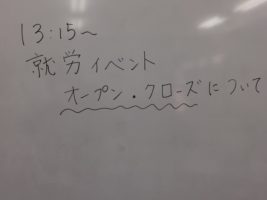 13:15〜
就労イベント
オープン・クローズについて